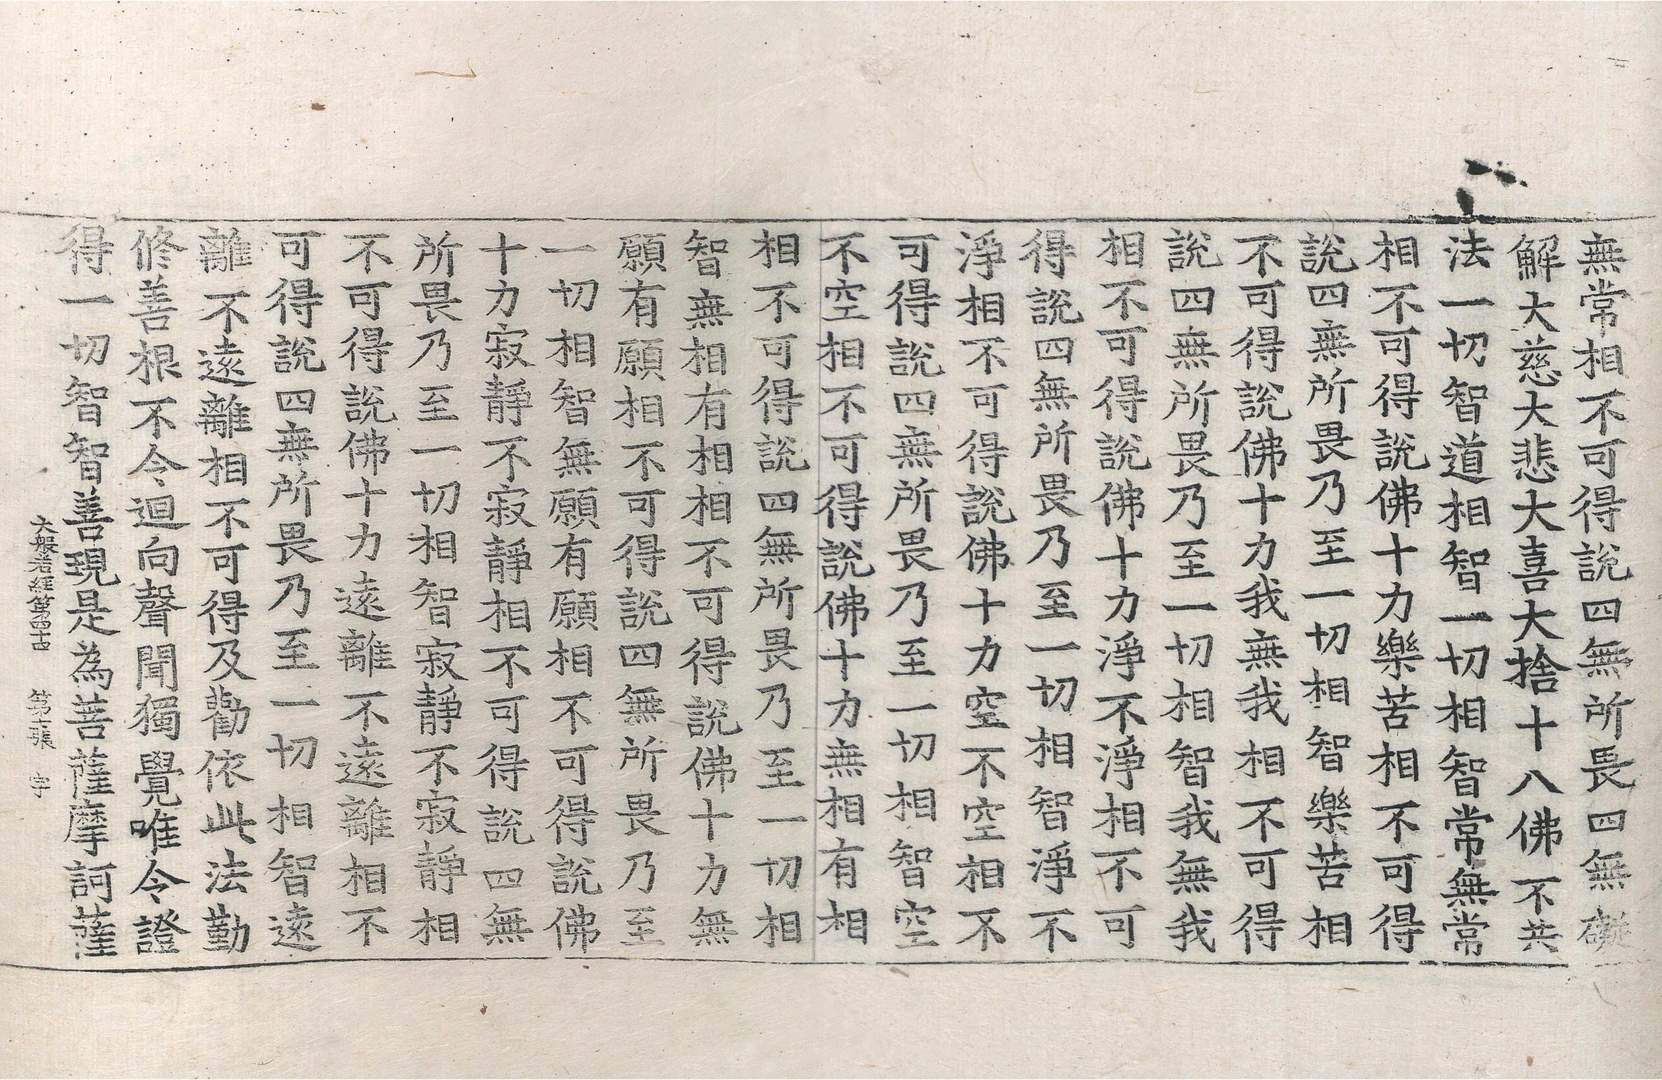 無常相不可得說四無所畏四無礙
解大慈大悲大喜大捨十八佛不共
法一切智道相智一切相智常無常
相不可得說佛十力樂苦相不可得
說四無所畏乃至一切相智樂苦相
不可得說佛十力我無我相不可得
說四無所畏乃至一切相智我無我
相不可得說佛十力淨不淨相不可
得說四無所畏乃至一切相智淨不
淨相不可得說佛十力空不空相不
可得說四無所畏乃至一切相智空
不空相不可得說佛十力無相有相
相不可得說四無所畏乃至一切相
智無相有相相不可得說佛十力無
願有願相不可得說四無所畏乃至
一切相智無願有願相不可得說佛
十力寂靜不寂靜相不可得說四無
所畏乃至一切相智寂靜不寂靜相
不可得說佛十力遠離不遠離相不
可得說四無所畏乃至一切相智遠
離不遠離相不可得及勸依此法勤
修善根不令迴向聲聞獨覺唯令證
得一切智智善現是為菩薩摩訶薩
大般若經第四十 第十張 宇